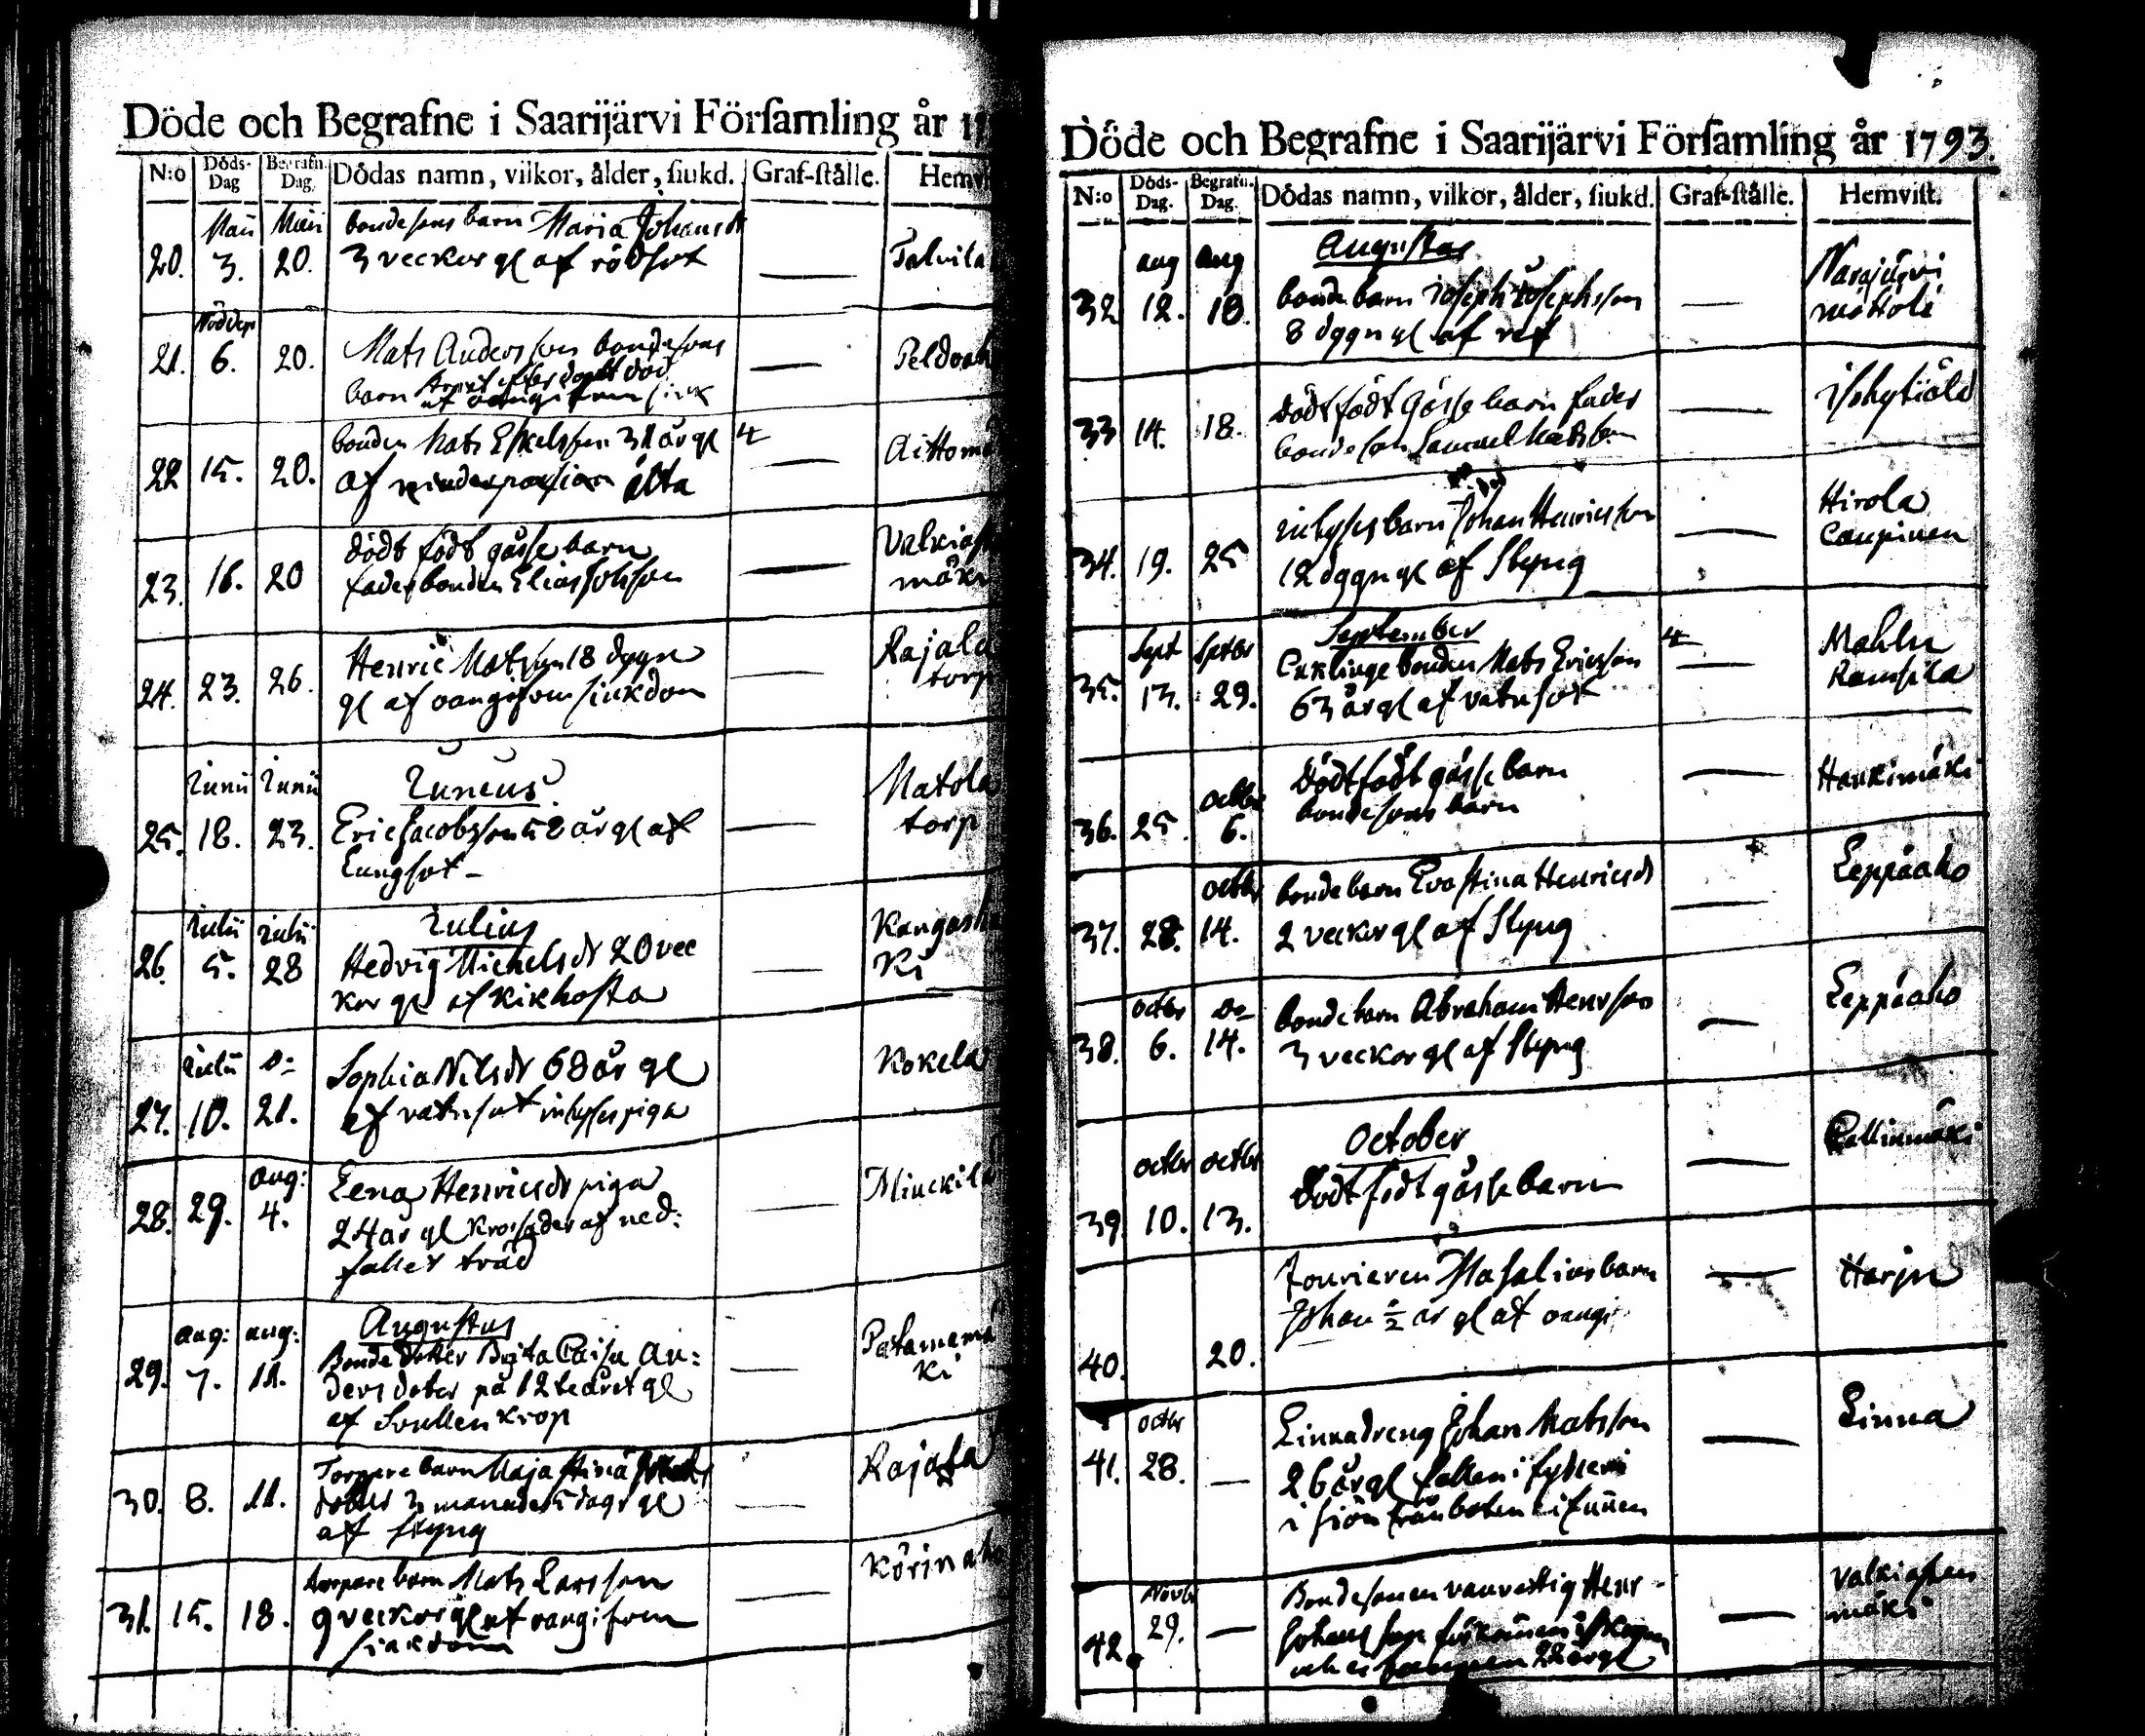 Döde och Begrafne i Saarijärvi Förſamling år 17
N:o Döds-Dag Begrafn. Dag. Dödas namn, vilkor, ålder, ſiukd. Graf-ſtälle. Hemvi
Maii Maii bondesons barn Maria Johansdr
20. 3. 20. 3 veckor gl af rödsot — Talvila
Nöddop
21. 6. 20. Mats Andersson bondesons — Peldoah
barn straxt efter dopet död
af oangifven siuk
22 15. 20. bonden Mats Eskelsson 31 år gl 4 — Aittomä
af
23. 16. 20 dödt födt gåsse barn — Valkiash
fader bonden Elias Johsson mäki
24. 23. 26. Henric Matsson 18 dygn — Rajala
gl af oangifven siukdom torp
Junii Junii Junius
25. 18. 23. Eric Jacobsson 58 år gl af — Matola
Lungsot torp
Julii Julii Julius
26. 5. 28 Hedvig Michelsdr 20 vec — Kangash
kor gl af kikhosta ki
Julii do
27. 10. 21. Sophia Nilsdr 68 år gl Kokela
af vatnsot inhysespiga
aug:
28. 29. 4. Lena Henricsdr piga — Minckila
24 år gl krossades af ned:
fallet träd
aug: aug: Augustus
29. 7. 11. Bonde dotter Brita Caisa An: — Patamamä
ders doter på 12te året gl ki
af Svullen kropp
30. 8. 11. Torpare barn Maja Stina — Rajala
doter 3 månader 5 dagr gl
af styng
31. 15. 18. torpare barn Mats Larsson — Körinaho
9 veckor gl af oangifven
siukdom
Döde och Begrafne i Saarijärvi Förſamling år 1793.
N:o Döds-Dag. Begrafn. Dag. Dödas namn, vilkor, ålder, ſiukd. Graf-ſtälle. Hemviſt.
aug aug Augustus
32 12. 18. bonde barn Joseph Josephsson — Narajärvi
8 dygn gl af ref mattoli
33 14. 18. dödt födt Gåsse barn fader —
bondeson Samuel Matsson
34. 19. 25 inhyses barn Johan Henricsson — Hirola
12 dygn gl af Styng Caupinen
Sept Septbr September
35. 13. 29. bonden Mats Ericsson 4 — Mahlu
63 år gl af vatusot Ramsila
octbr
36. 25. 6. Dödt födt gåsse barn — Haukimäki
bondesons barn
octbr
37. 28. 14. bonde barn Eva Stina Henricsdr — Leppäaho
2 veckor gl af Styng
octbr do
38. 6. 14. bonde barn Abraham Henrsson — Leppäaho
3 veckor gl af Styng
octbr octbr October
39. 10. 13. dödt födt gåsse barn — Kallinmäki
40. 20. Fourieren Masalins barn — Harju
Johan ½ år gl af oangi
octbr
41. 28. — Linnadreng Johan Matsson — Linna
26 år gl fallen i fylleri
i siön från boten ei funnen
Novbr
42. 29. — Bondesonen vanvettig Henr — Valkiashen
Johansson förkommen i skogen mäki
och ei funnen 22 år gl